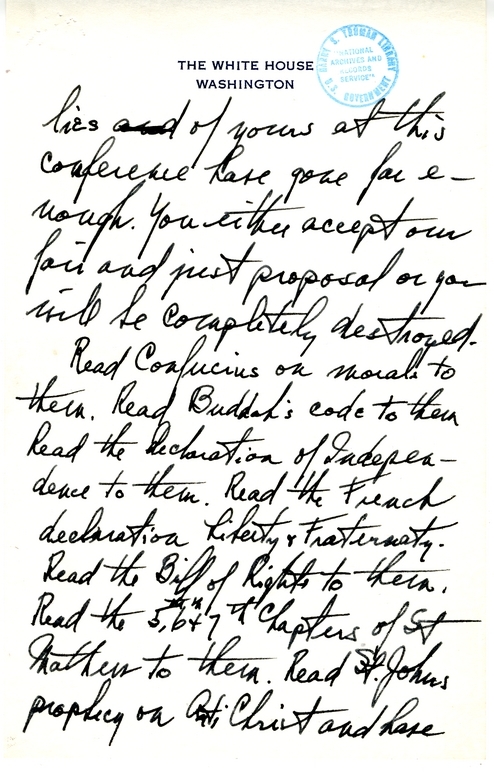 THE WHITE HOUSE
WASHINGTON
HARRY S. TRUMAN LIBRARY
"NATIONAL
ARCHIVES AND
RECORDS
SERVICE"
U.S. GOVERNMENT
lies and of yours at this
conference have gone far e-
nough. You either accept our
fair and just proposal or you
will be completely destroyed.
Read Confucius on morals to
them. Read Buddah's code to them
Read the declaration of Indepen-
dence to them. Read the French
declaration Liberty & Fraternaty.
Read the Bill of Rights to them.
Read the 5th, 6th & 7th Chapters of St
Mathew to them. Read St. Johns
prophecy on Anti Christ and have